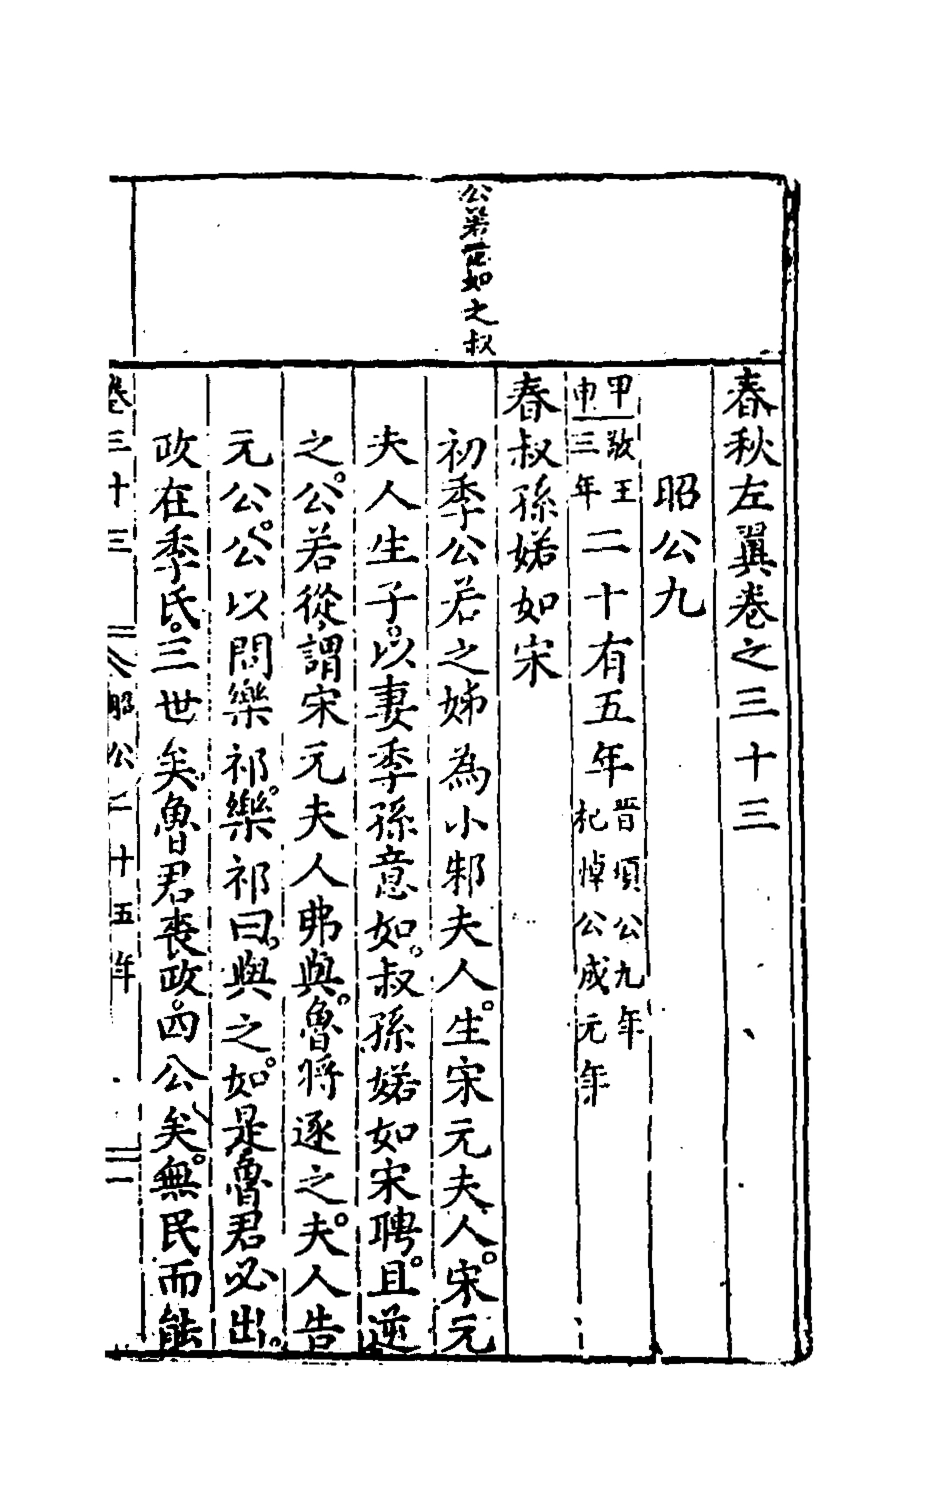 春秋左翼卷之三十三
昭公九
甲申敬王三年二十有五年晉頃公九年杞悼公成元年
春叔孫婼如宋
如之叔
初季公若之姊為小邾夫人。生宋元夫人。宋元
夫人生子。以妻季孫意如。叔孫婼如宋聘。且逆
之。公若從謂宋元夫人弗與。魯將逐之。夫人告
元公。公以問樂祁。樂祁曰。與之。如是魯君必出。
政在季氏。三世矣。魯君喪政。四公矣。無民而能
卷三十三 昭公二十五年 一